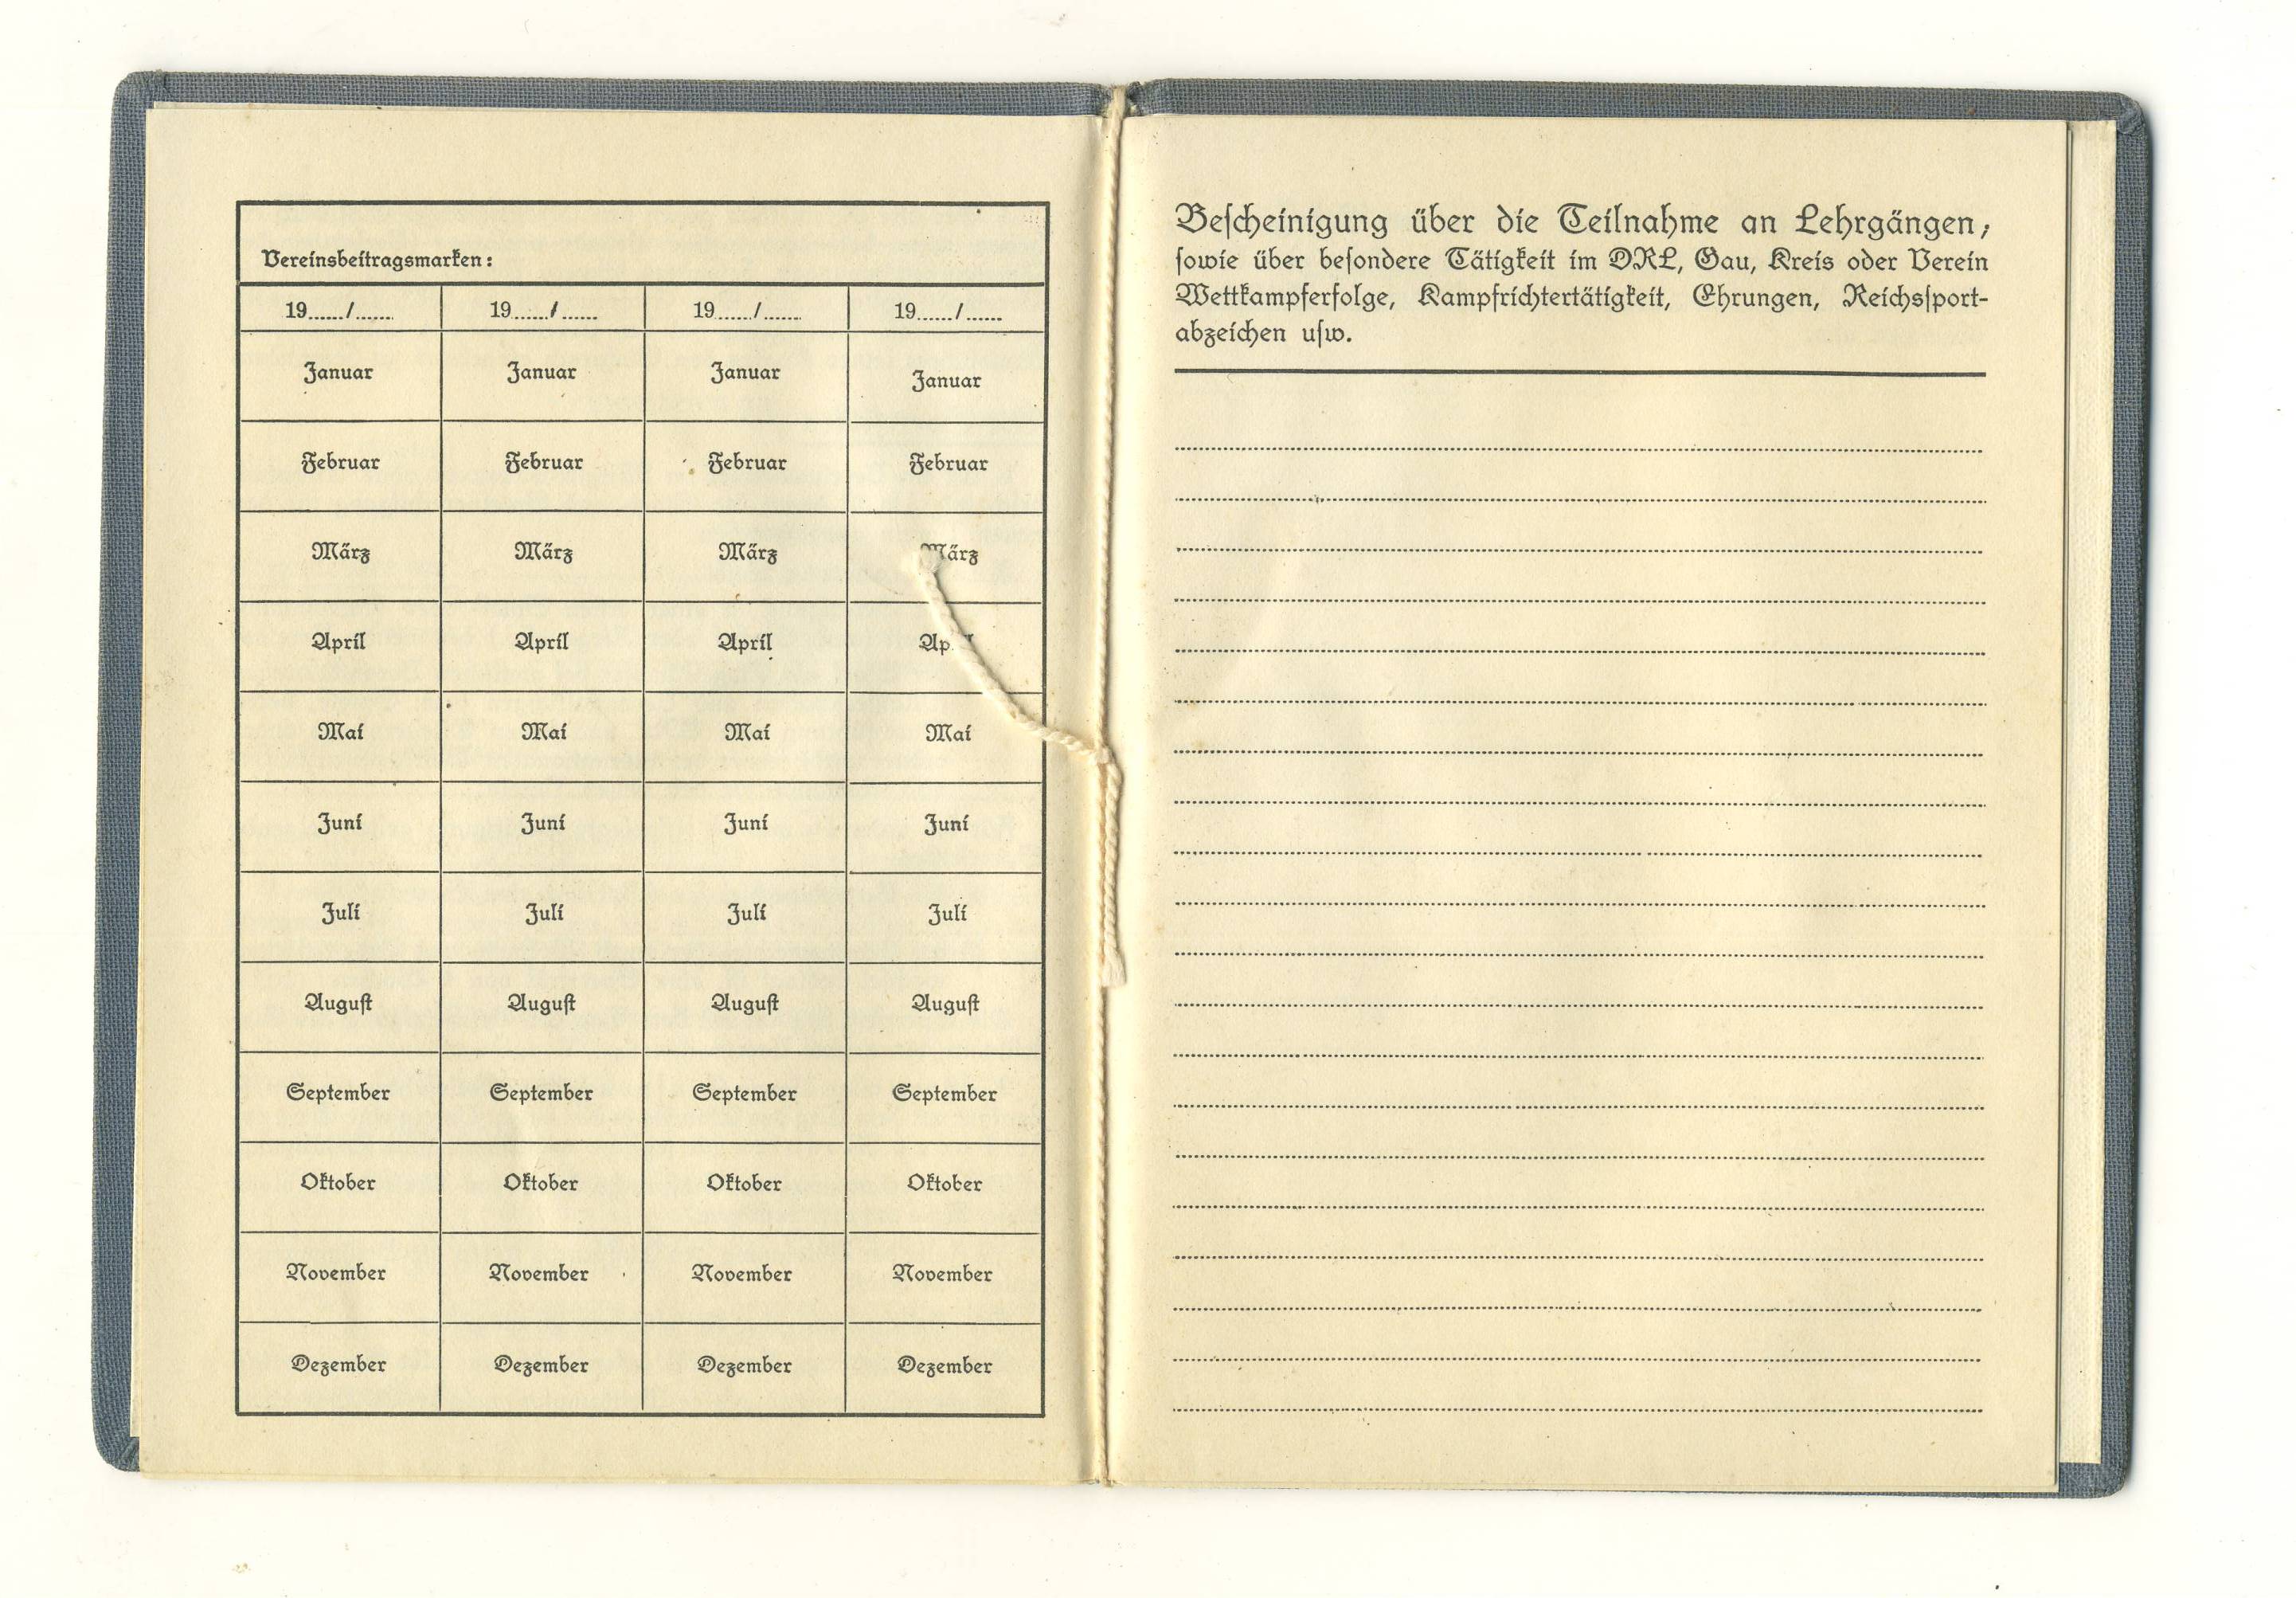 Vereinsbeitragsmarken:
19....../...... 19....../...... 19....../...... 19....../......
Januar Januar Januar Januar
Februar Februar Februar Februar
März März März März
April April April
Mai Mai Mai Mai
Juni Juni Juni Juni
Juli Juli Juli Juli
Auguſt Auguſt Auguſt Auguſt
September September September September
Oktober Oktober Oktober Oktober
November November November November
Dezember Dezember Dezember Dezember
Beſcheinigung über die Teilnahme an Lehrgängen,
ſowie über beſondere Tätigkeit im DRL, Gau, Kreis oder Verein
Wettkampferfolge, Kampfrichtertätigkeit, Ehrungen, Reichsſport-
abzeichen uſw.